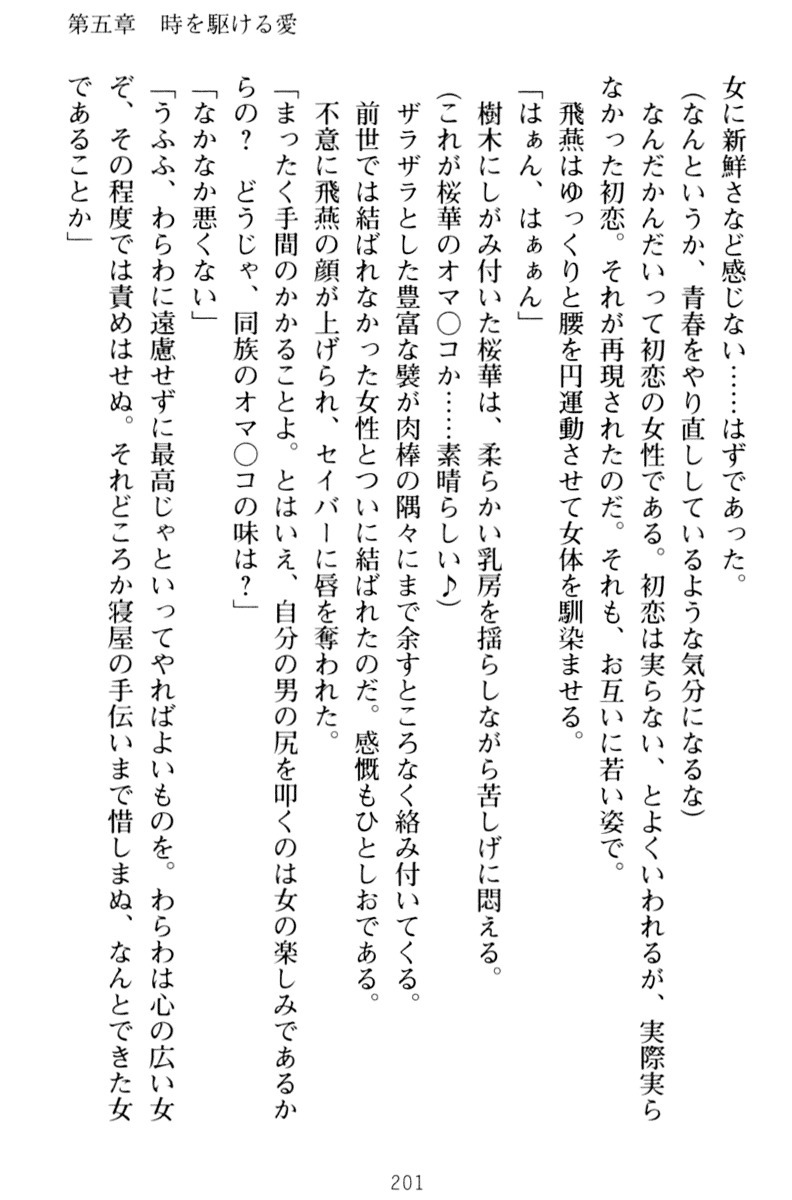 第五章　時を駆ける愛
女に新鮮さなど感じない……はずであった。
(なんというか、青春をやり直ししているような気分になるな)
なんだかんだいって初恋の女性である。初恋は実らない、とよくいわれるが、実際実ら
なかった初恋。それが再現されたのだ。それも、お互いに若い姿で。
飛燕はゆっくりと腰を円運動させて女体を馴染ませる。
「はぁん、はぁぁん」
樹木にしがみ付いた桜華は、柔らかい乳房を揺らしながら苦しげに悶える。
(これが桜華のオマ〇コか……素晴らしい♪)
ザラザラとした豊富な襞が肉棒の隅々にまで余すところなく絡み付いてくる。
前世では結ばれなかった女性とついに結ばれたのだ。感慨もひとしおである。
不意に飛燕の顔が上げられ、セイバーに唇を奪われた。
「まったく手間のかかることよ。とはいえ、自分の男の尻を叩くのは女の楽しみであるか
らの？　どうじゃ、同族のオマ〇コの味は？」
「なかなか悪くない」
「うふふ、わらわに遠慮せずに最高じゃといってやればよいものを。わらわは心の広い女
ぞ、その程度では責めはせぬ。それどころか寝屋の手伝いまで惜しまぬ、なんとできた女
であることか」
201